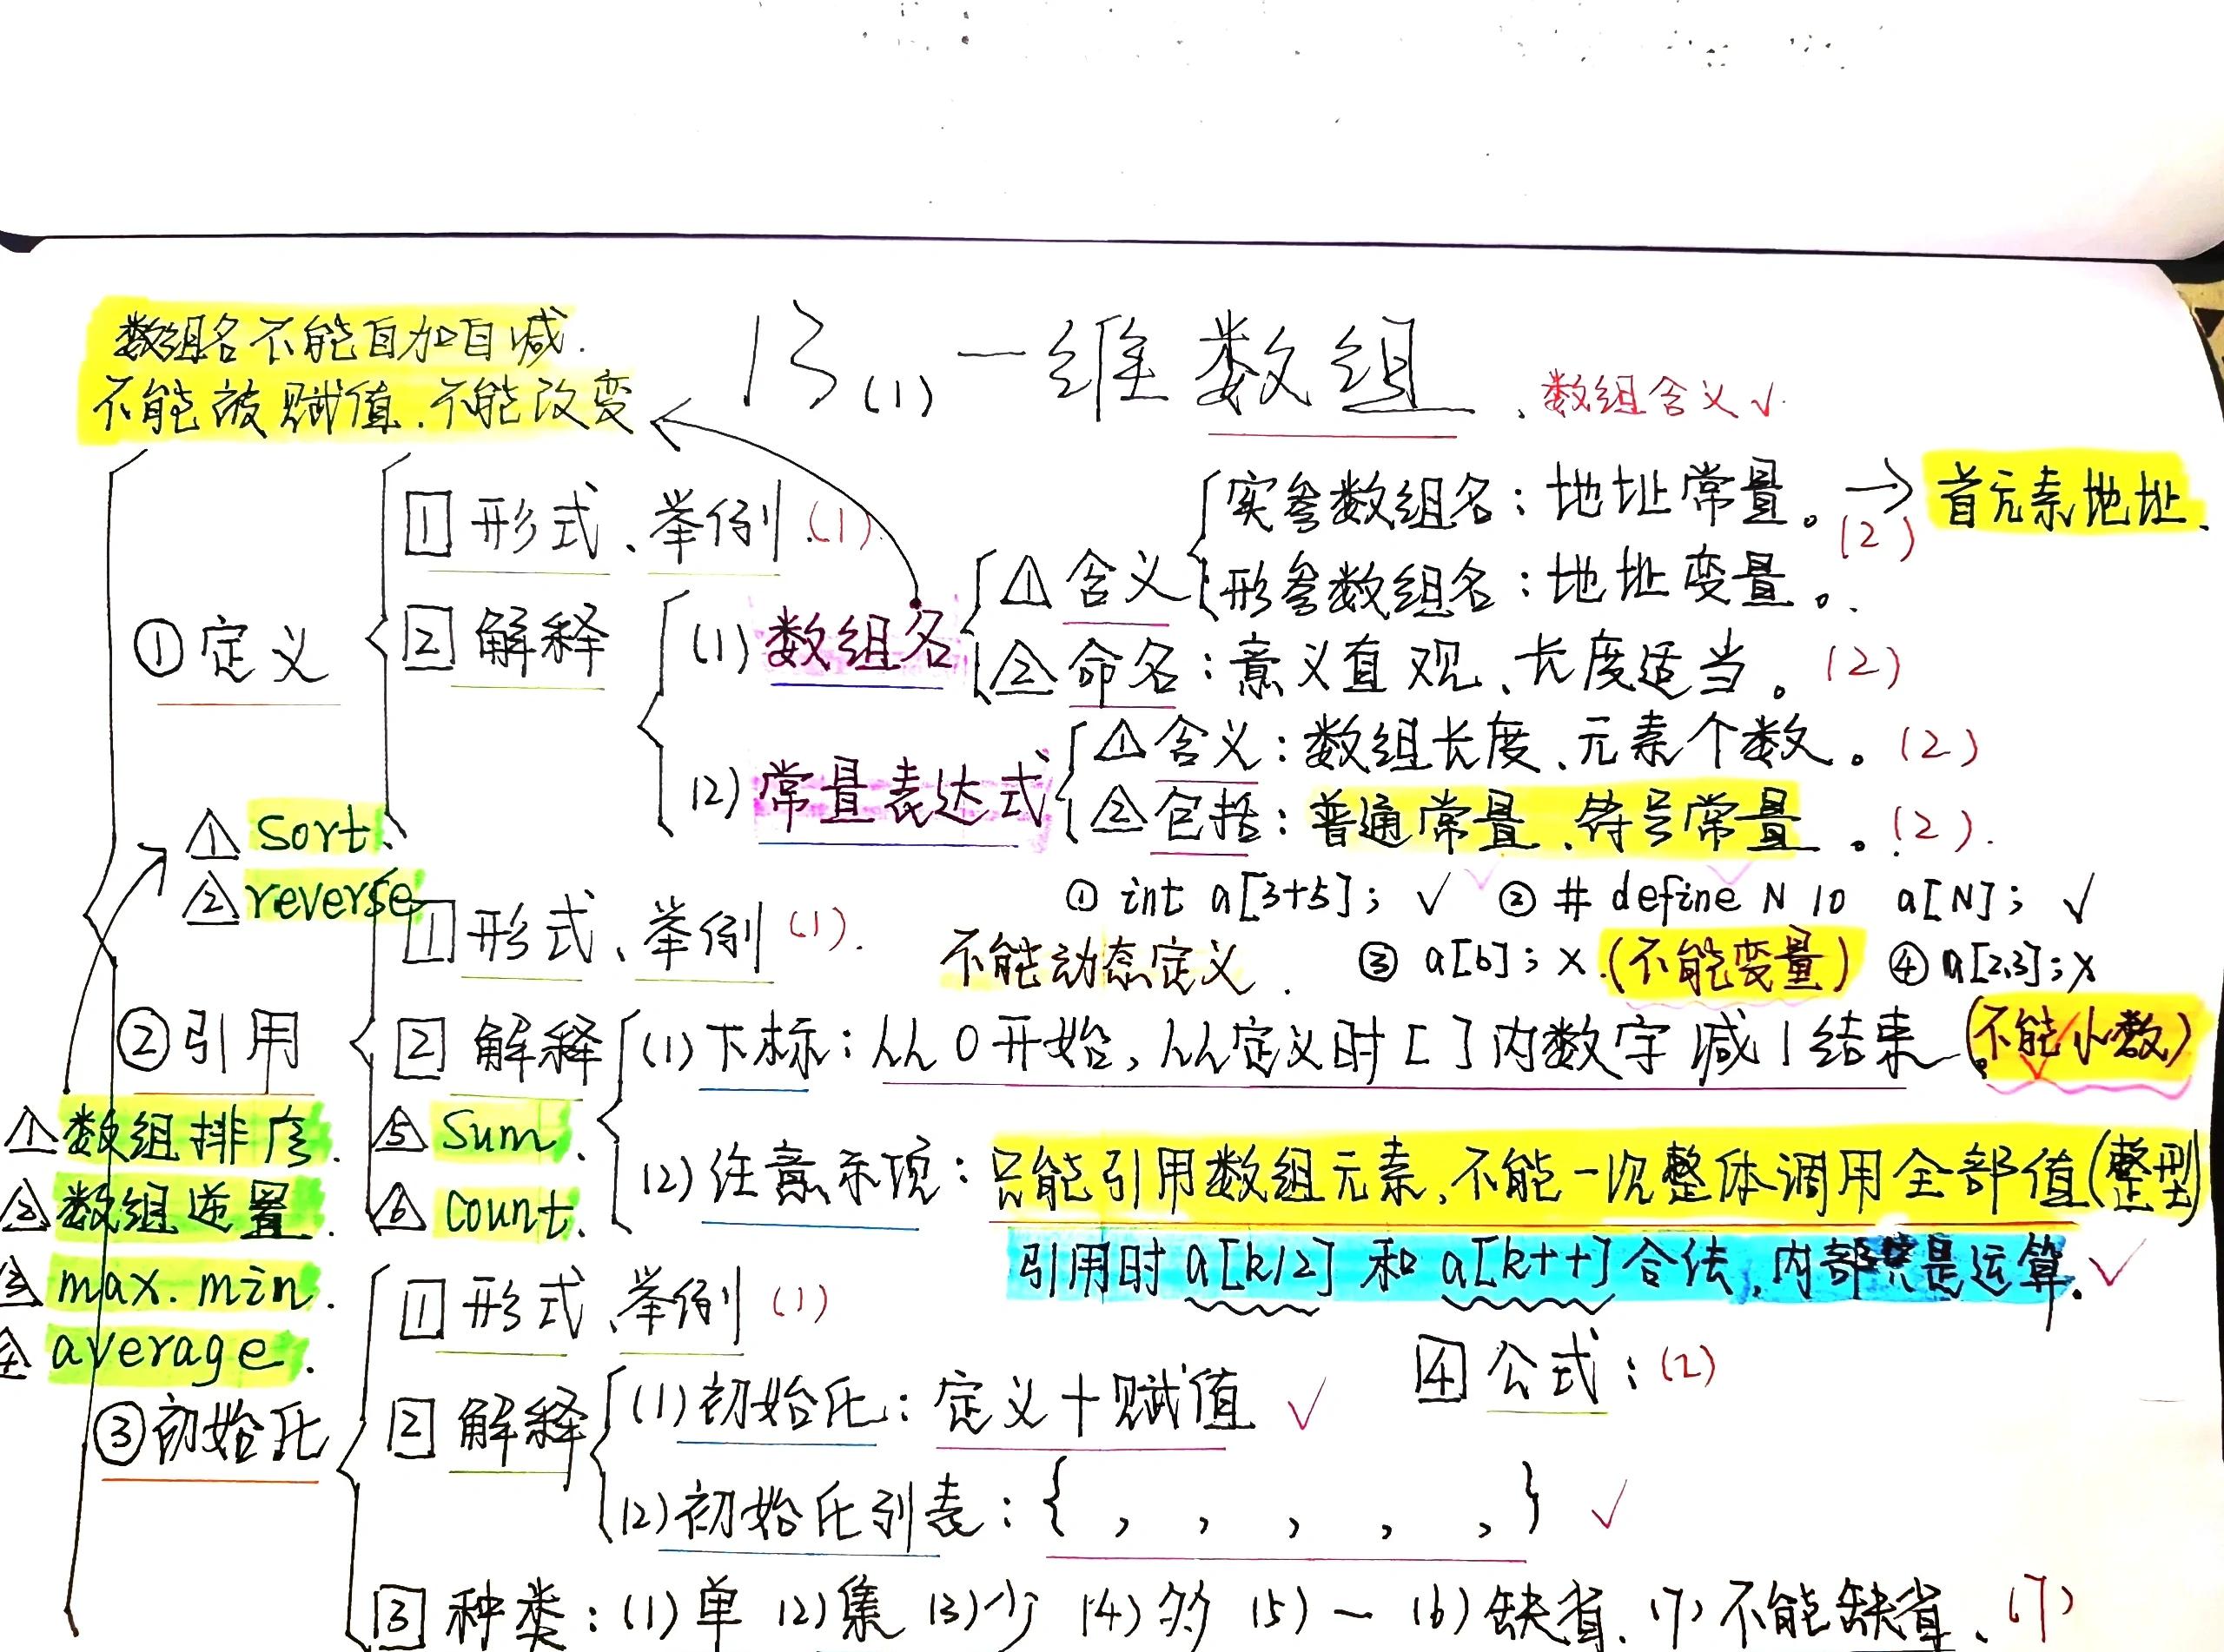 数组名不能自加自减.
不能被赋值.不能改变
13(1) 一维数组 、数组含义√.
① 定义
1 形式、举例 (1).
2 解释
(1) 数组名
△1 含义
实参数组名：地址常量。(2) → 首元素地址、
形参数组名：地址变量。.
△2 命名：意义直观、长度适当。(2)
(2) 常量表达式
△1 含义：数组长度、元素个数。(2)
△2 包括：普通常量、符号常量。(2).
① int a[3+5]; √ ② # define N 10 a[N]; √
不能动态定义. ③ a[b]; ×.(不能变量) ④ a[2.3];×
△1 sort、
△2 reverse
② 引用
1 形式、举例 (1).
2 解释
(1) 下标：从0开始，从定义时[ ]内数字减1结束。(不能小数)
(2) 注意事项：只能引用数组元素,不能一次整体调用全部值(整型)
引用时 a[k/2] 和 a[k++] 合法,内部只是运算.√
△1 数组排序.
△2 数组逆置.
△3 max. min.
△4 average.
△5 Sum.
△6 count.
③ 初始化
1 形式、举例 (1)
2 解释
(1) 初始化：定义+赋值 √
(2) 初始化列表：{ , , , , , } √
4 公式：(2)
3 种类：(1) 单 (2) 集 (3) 少 (4) 多 (5) ~ (6) 缺省. (7) 不能缺省、(7)